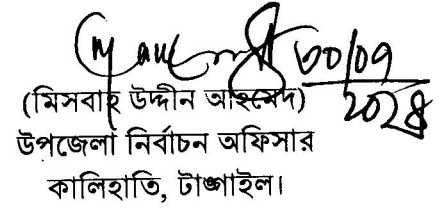 ৩০/০৭
২০২৪
(মিসবাহ উদ্দীন আহমেদ)
উপজেলা নির্বাচন অফিসার
কালিহাতি, টাঙ্গাইল।